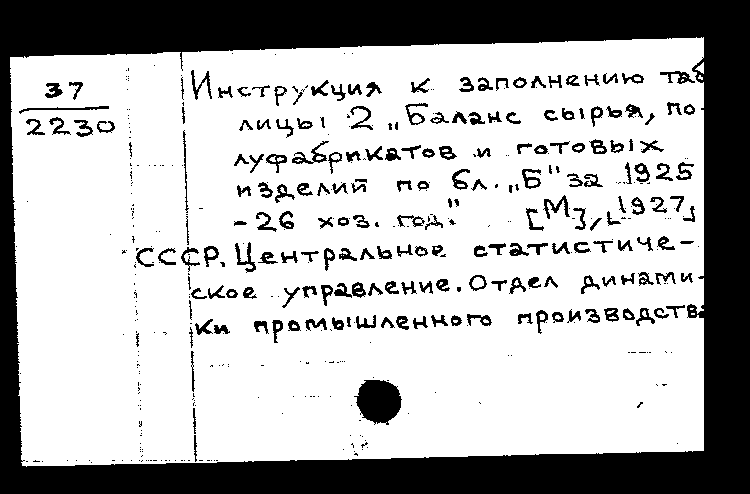 37
2230
Инструкция к заполнению таб
лицы 2 „Баланс сырья, по-
луфабрикатов и готовых
изделий по бл. „Б" за 1925
-26 хоз. год." [М], [1927]
СССР. Центральное статистиче-
ское управление. Отдел динами-
ки промышленного производства